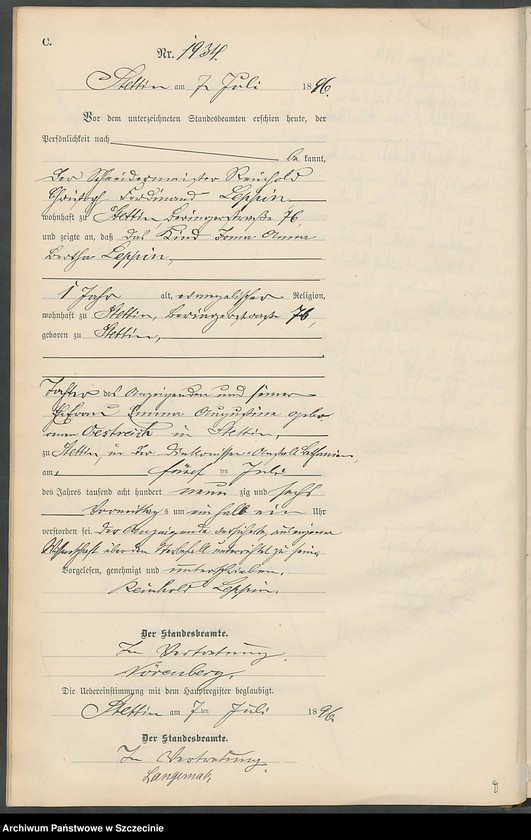 C.
Nr. 1934.
Stettin am 7. Juli 1896.
Vor dem unterzeichneten Standesbeamten erschien heute, der
Persönlichkeit nach
be kannt,
der Schneidermeister Reinhold
Christoph Ferdinand Leppin,
wohnhaft zu Stettin Beringerstraße 76
und zeigte an, daß das Kind Anna
Bertha Leppin,
1 Jahr alt, evangelischer Religion,
wohnhaft zu Stettin, Beringerstraße 76,
geboren zu Stettin,
Tochter des Anzeigenden und seiner
Ehefrau Emma Augustine gebo
renen Oestreich in Stettin,
zu Stettin, in der Diakonissen-Anstalt Bethanien,
am fünf ten Juli
des Jahres tausend acht hundert neun zig und sechs
Vormittags um ein halb ein Uhr
verstorben sei. Der Anzeigende versicherte, aus eigener
Wissenschaft über den Sterbefall unterrichtet zu sein.
Vorgelesen, genehmigt und unterschrieben.
Reinhold Leppin.
Der Standesbeamte.
In Vertretung.
Nörenberg.
Die Uebereinstimmung mit dem Hauptregister beglaubigt.
Stettin am 7ten Juli 1896.
Der Standesbeamte.
In Vertretung.
Langemak.
8
Archiwum Państwowe w Szczecinie